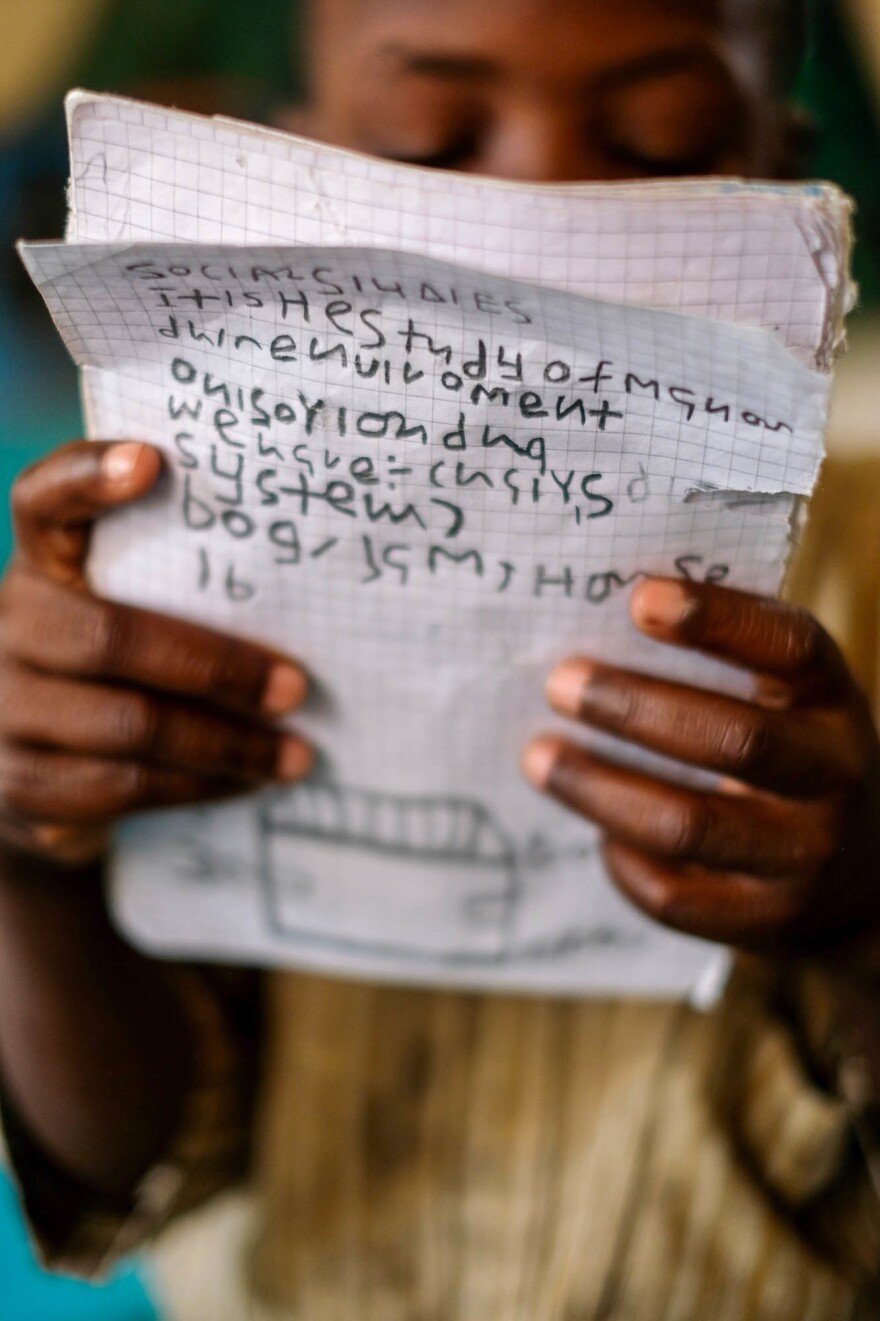 SOCIALSIUDIES
ITISHestudyofmanon
dhinenuiroment
onisoYiondhq
wehave:-chaiys
system,
bog/Jam, House
16